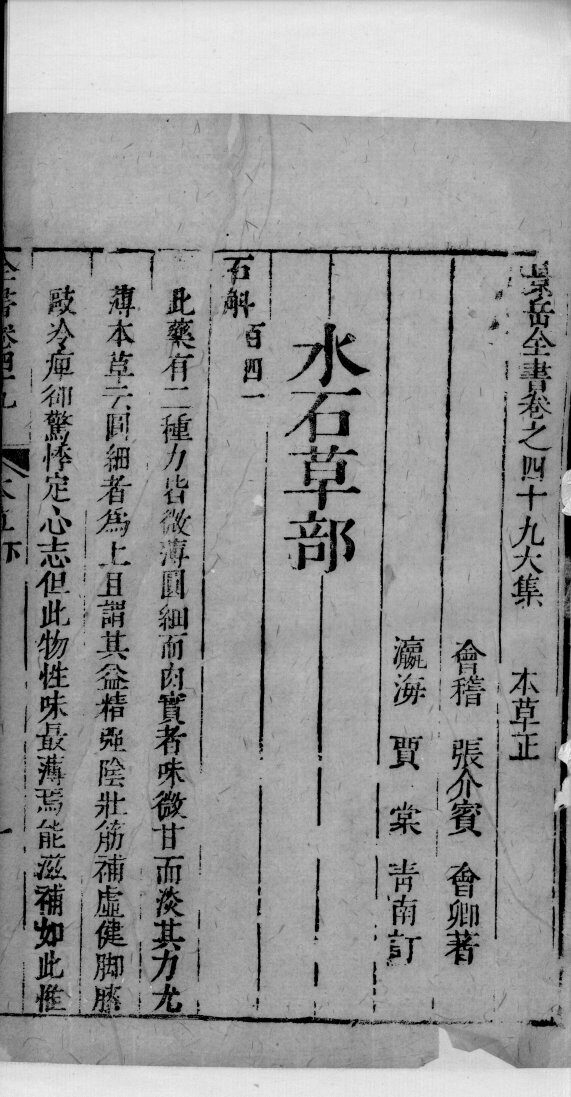 景岳全書卷之四十九大集 本草正
會稽 張介賓 會卿著
瀛海 賈棠 青南訂
水石草部
石斛 百四一
此藥有二種力皆微薄圓細而肉實者味微甘而淡其力尤
薄本草云圓細者爲上且謂其益精強陰壯筋補虛健脚膝
敺冷痺却驚悸定心志但此物性味最薄焉能滋補如此惟
全書卷四十九 本草下 一